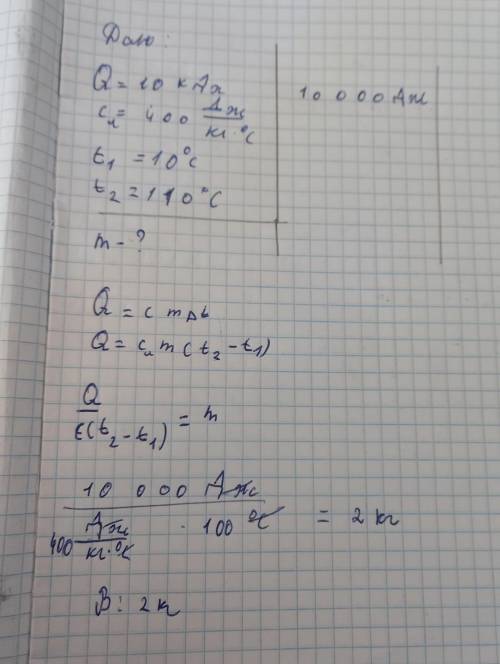 Дано:
Q = 10 кДж
10 000 Дж
cл = 400 Дж / кг·°C
t₁ = 10°C
t₂ = 110°C
m - ?
Q = c m Δt
Q = cл m (t₂ - t₁)
Q / c(t₂ - t₁) = m
10 000 Дж / 400 Дж / кг·°C · 100 °C = 2 кг
В: 2 кг